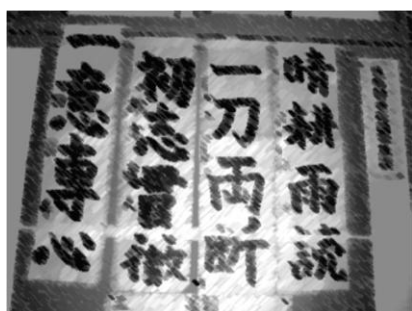 晴耕雨読
一刀両断
初志貫徹
一意専心